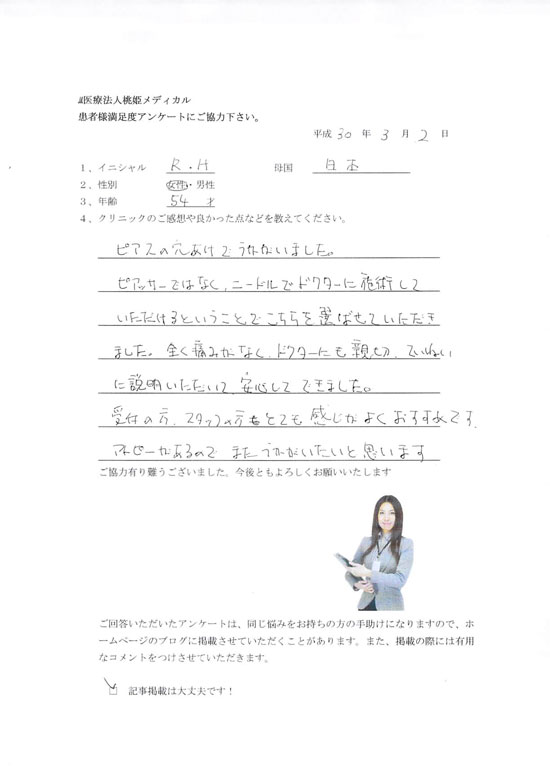 医療法人桃姫メディカル
患者様満足度アンケートにご協力下さい。
平成 30 年 3 月 2 日
1、イニシャル R.H 母国 日本
2、性別 女性・男性
3、年齢 54 才
4、クリニックのご感想や良かった点などを教えてください。
ピアスの穴あけでうかがいました。
ピアッサーではなく、ニードルでドクターに施術して
いただけるということでこちらを選ばせていただき
ました。全く痛みがなく、ドクターにも親切、ていねい
に説明いただいて、安心してできました。
受付の方、スタッフの方もとても感じがよくおすすめです。
アトピーがあるので またうかがいたいと思います
ご協力有り難うございました。今後ともよろしくお願いいたします
ご回答いただいたアンケートは、同じ悩みをお持ちの方の手助けになりますので、ホ
ームページのブログに掲載させていただくことがあります。また、掲載の際には有用
なコメントをつけさせていただきます。
記事掲載は大丈夫です！